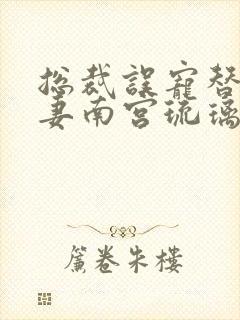 总裁误宠替
妻南宫琉璃
簾卷朱樓